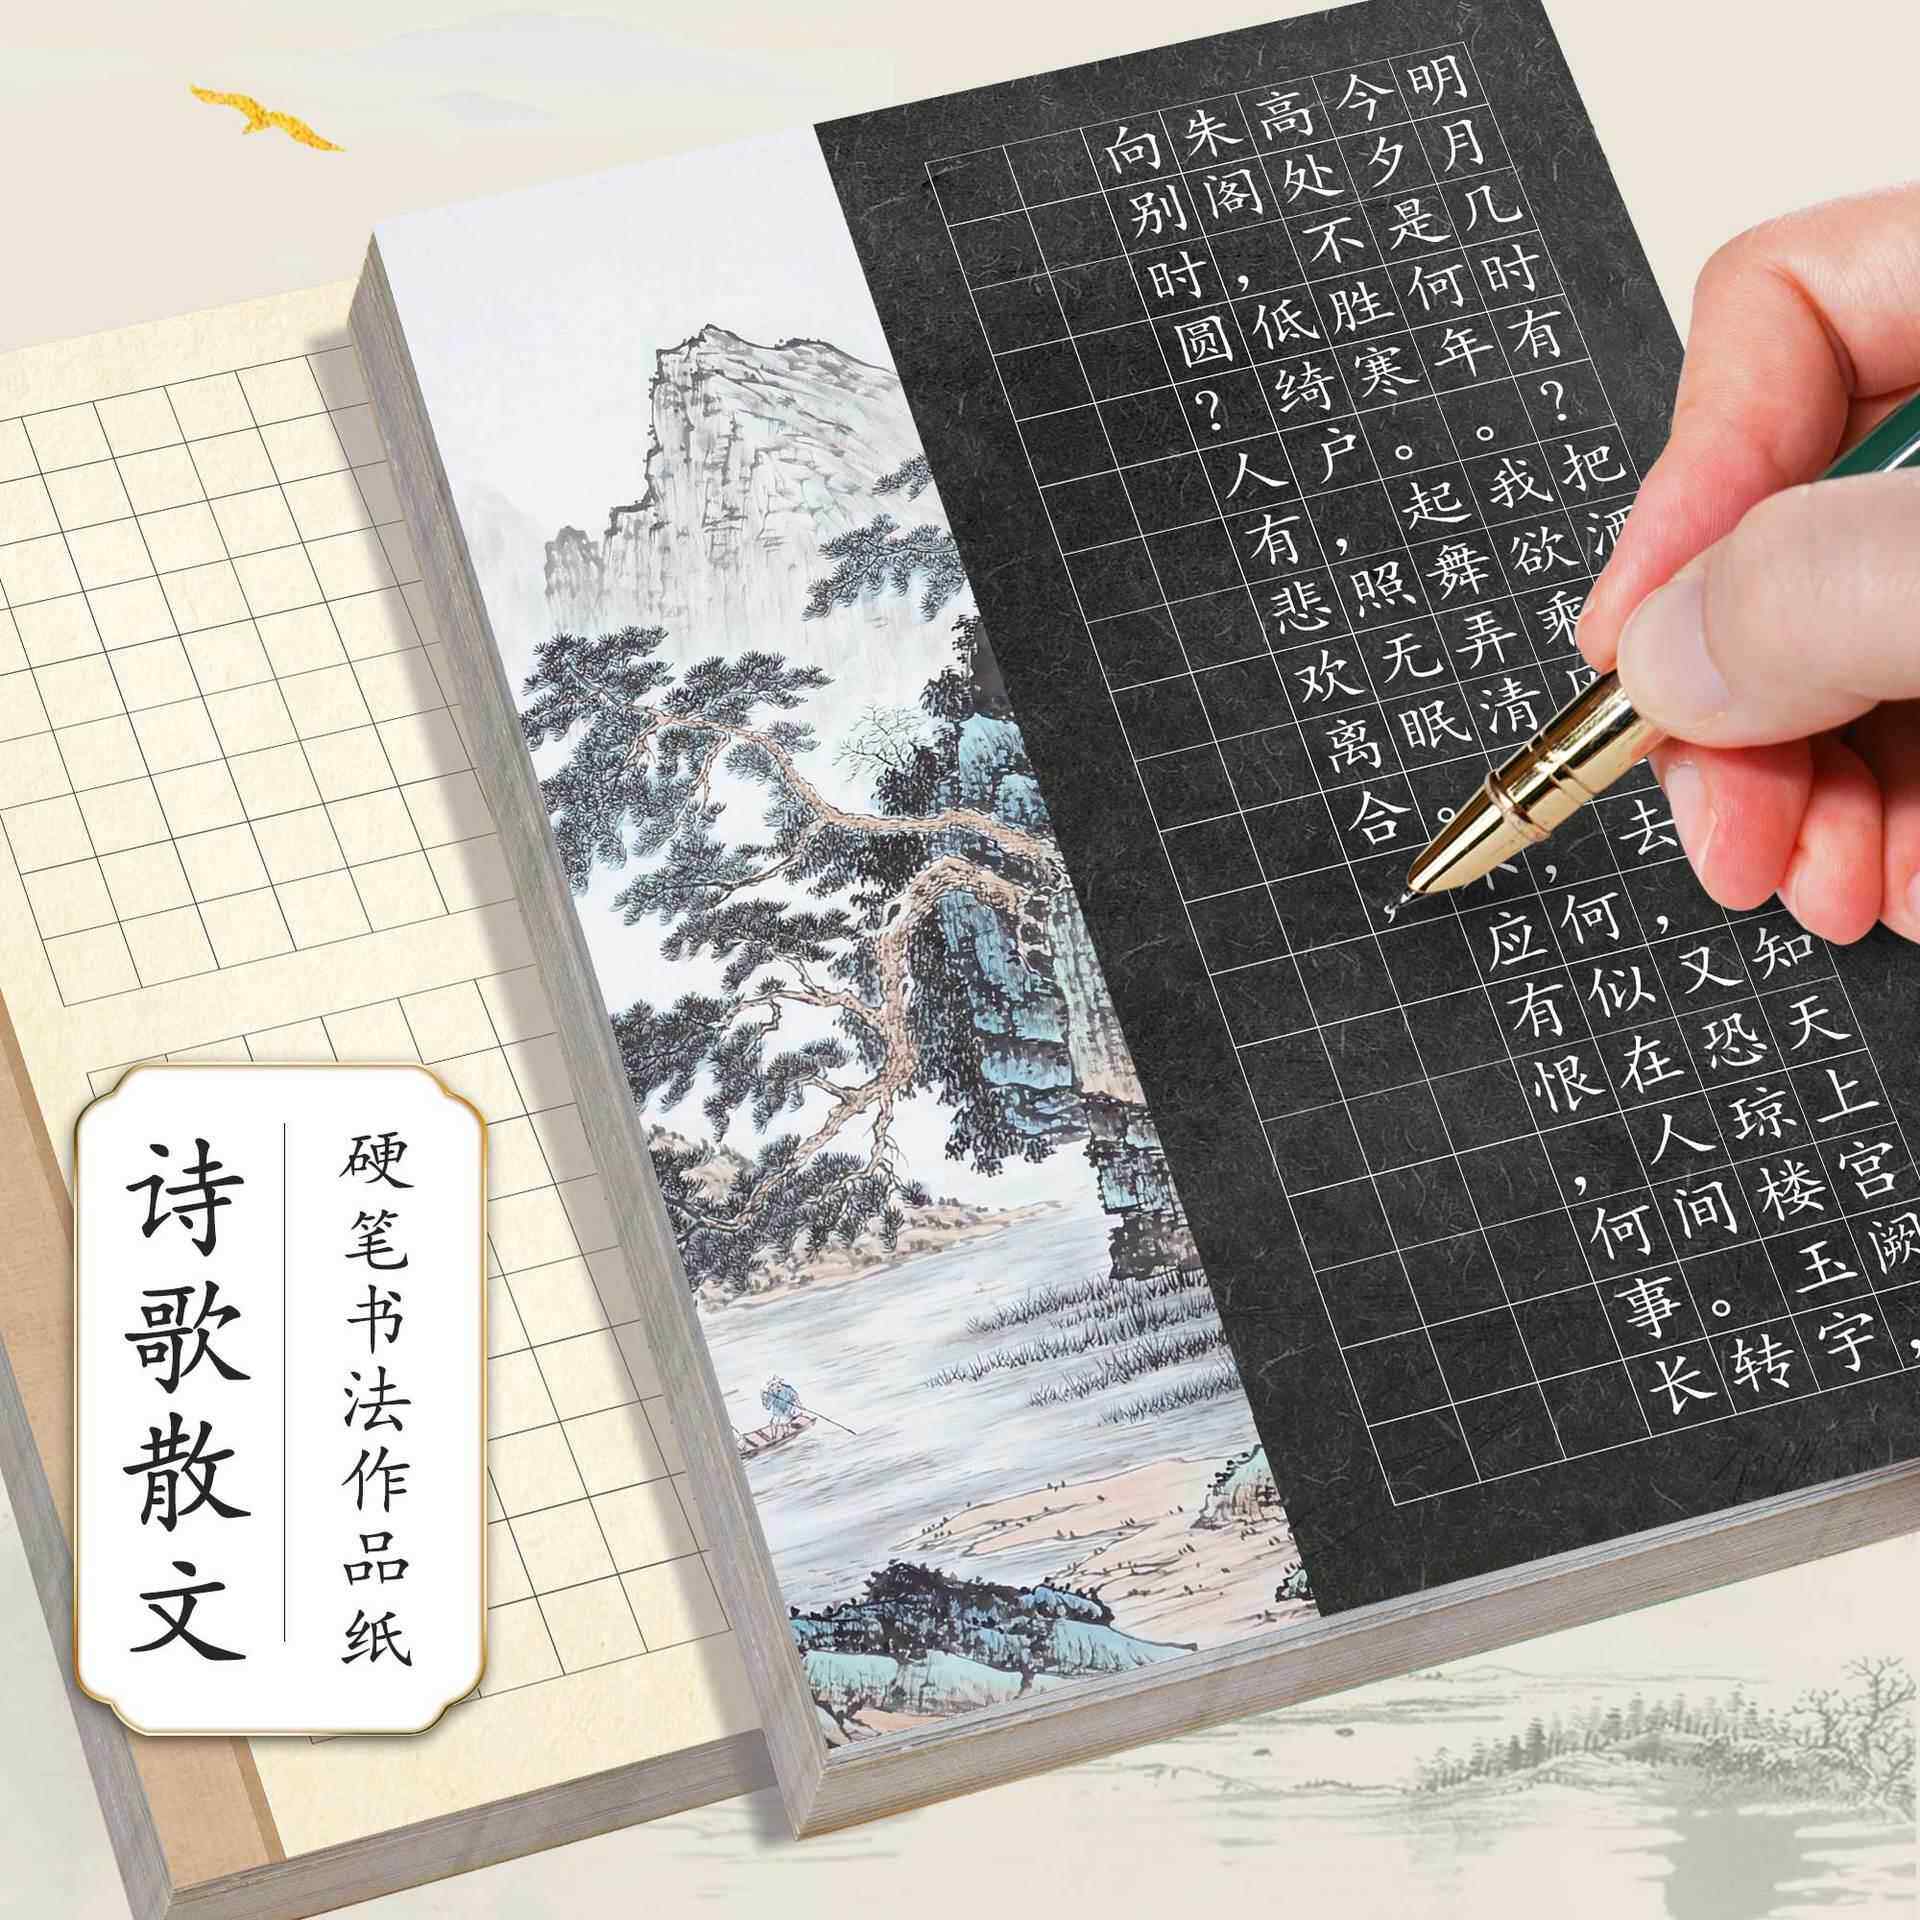 明月几时有？把酒知天上宫阙，
今夕是何年。我欲乘去，又恐琼楼玉宇
高处不胜寒。起舞弄清，何似在人间。转
朱阁，低绮户，照无眠。应有恨，何事长
向别时圆？人有悲欢离合，
硬笔书法作品纸
诗歌散文